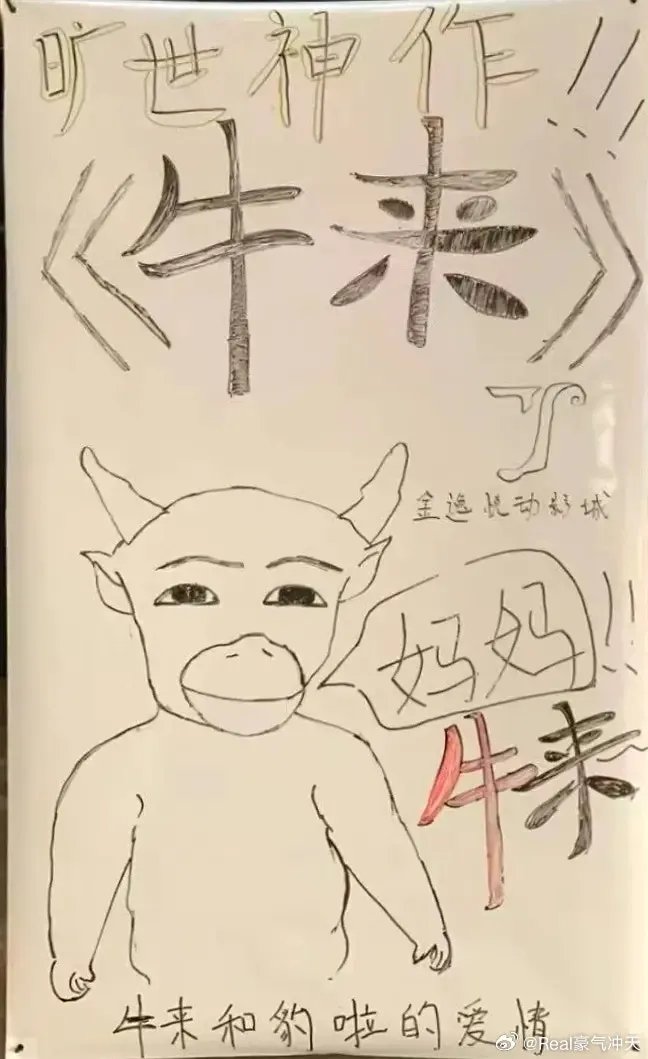 旷世神作!!!
《牛来》
了
金逸悦动影城
妈妈!!
牛来
牛来和豹啦的爱情
@Real豪气冲天